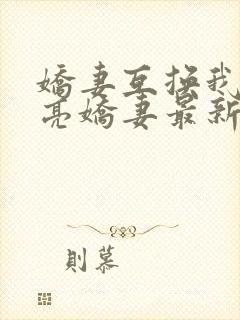 嬌妻互換我
亮嬌妻最新
則慕